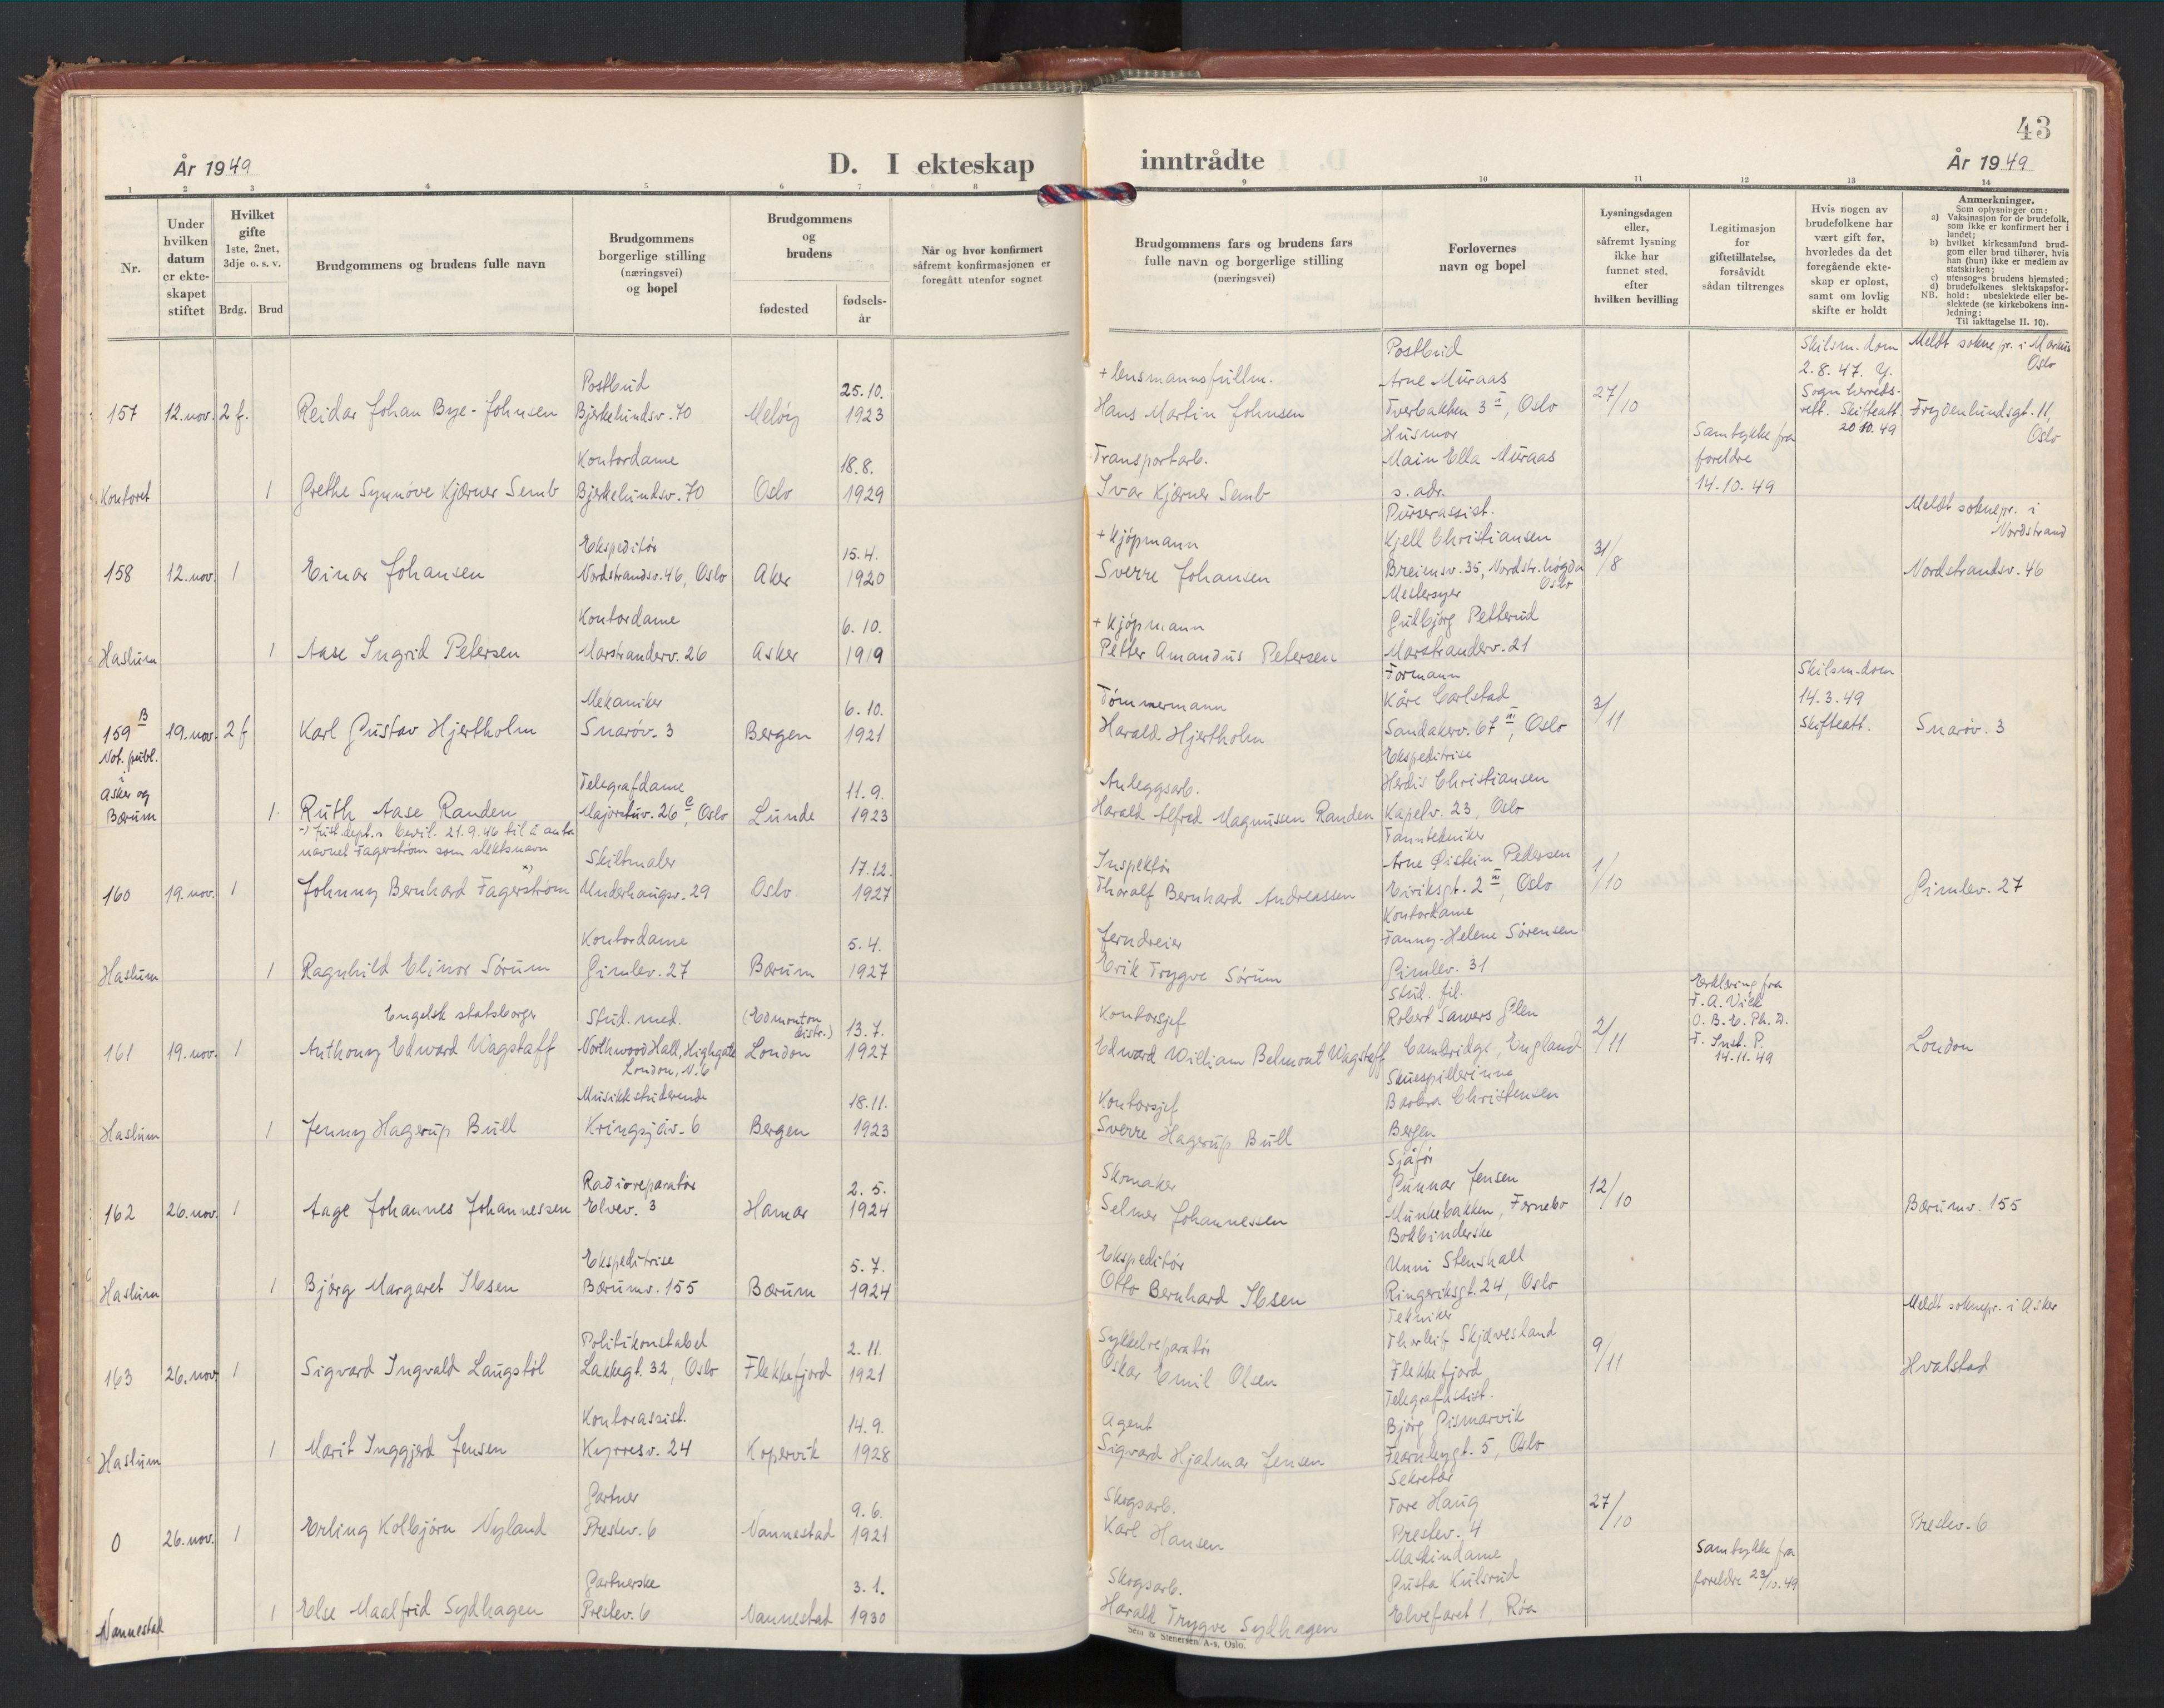 43
År 1949
D. I ekteskap inntrådte
År 1949
1 2 3 4 5 6 7 8 9 10 11 12 13 14
Nr.
Under hvilken datum er ekteskapet stiftet
Hvilket gifte
1ste, 2net, 3dje o. s. v.
Brdg. Brud
Brudgommens og brudens fulle navn
Brudgommens borgerlige stilling (næringsvei) og bopel
Brudgommens og brudens
fødested
fødsels-år
Når og hvor konfirmert såfremt konfirmasjonen er foregått utenfor sognet
Brudgommens fars og brudens fars fulle navn og borgerlige stilling (næringsvei)
Forlovernes navn og bopel
Lysningsdagen eller, såfremt lysning ikke har funnet sted, efter hvilken bevilling
Legitimasjon for giftetillatelse, forsåvidt sådan tiltrenges
Hvis nogen av brudefolkene har vært gift før, hvorledes da det foregående ekteskap er opløst, samt om lovlig skifte er holdt
Anmerkninger.
Som oplysninger om:
a) Vaksinasjon for de brudefolk, som ikke er konfirmert her i landet;
b) hvilket kirkesamfund brudgom eller brud tilhører, hvis han (hun) ikke er medlem av statskirken;
c) utensogns brudens hjemsted;
d) brudefolkenes slektskapsforhold: ubeslektede eller beslektede (se kirkebokens innledning;
NB. Til iakttagelse II. 10).
157 12. nov. 2 f. Reidar Johan Bye-Johnsen
Postbud
Bjerkelundsv. 70
Meløy
25.10.
1923
+ lensmannsfullm.
Hans Martin Johnsen
Postbud
Arne Muraas
Tverbakken 3 II, Oslo
27/10
Skilsm. dom
2.8.47. Y.
Sogn herreds-
rett. Skifteatt.
20.10.49
Meldt sokne pr. i Markus
Oslo
Frydenlundsgt. 11,
Oslo
Kontoret 1 Grethe Synnöve Kjærner Semb
Kontordame
Bjerkelundsv. 70
Oslo
18.8.
1929
Transportarb.
Ivar Kjærner Semb
Husmor
Main Ella Muraas
s. adr.
Samtykke fra
foreldre
14.10.49
158 12. nov. 1 Einar Johansen
Ekspeditör
Nordstrandsv. 46, Oslo
Aker
15.4.
1920
+ Kjöpmann
Sverre Johansen
Purserassist.
Kjell Christiansen
Breiensv. 35, Nordstr. högda
Oslo
31/8
Meldt soknepr. i
Nordstrand
Nordstrandsv. 46
Haslum 1 Aase Ingrid Petersen
Kontordame
Marstranderv. 26
Asker
6.10.
1919
+ Kjöpmann
Petter Amandus Petersen
Mestersyer
Gudbjörg Petterud
Marstranderv. 21
159 B 19. nov. 2 f Karl Gustav Hjertholm
Mekaniker
Snaröv. 3
Bergen
6.10.
1921
Tömmermann
Harald Hjertholm
Formann
Kåre Carlstad
Sandakerv. 67 III, Oslo
3/11
Skilsm. dom
14.3.49
Skifteatt.
Snaröv. 3
Not. publ.
i
Asker og
Bærum 1. Ruth Aase Randen
Telegrafdame
Majorstuv. 26 C, Oslo
Lunde
11.9.
1923
Anleggsarb.
Harald Alfred Magnussen Randen
Ekspeditrise
Herdis Christiansen
Kapelv. 23, Oslo
x) Just.dept.s bevil. 21.9.46 til å anta
navnet Fagerström som slektsnavn
160 19. nov. 1 Johnny Bernhard Fagerström x)
Skiltmaler
Underhaugsv. 29
Oslo
17.12.
1927
Inspektör
Thoralf Bernhard Andreassen
Tanntekniker
Arne Øistein Pedersen
Eiriksgt. 2 III, Oslo
1/10
Gimlev. 27
Haslum 1 Ragnhild Elinor Sörum
Kontordame
Gimlev. 27
Bærum
5.4.
1927
Jerndreier
Erik Trygve Sörum
Kontordame
Fanny-Helene Sörensen
Gimlev. 31
Engelsk statsborger
161 19. nov. 1 Anthony Edward Wagstaff
Stud. med.
Northwood Hall, Highgate
London, N.6
(Edmonton
distr.)
London
13.7.
1927
Kontorsjef
Edward William Belmont Wagstaff
Stud. fil.
Robert Sawers Glen
Cambridge, England
2/11
Erklæring fra
F. A. Vick
O. B. E. Ph. D.
F. Inst. P.
14.11.49
London
Haslum 1 Jenny Hagerup Bull
Musikkstuderende
Kringsjåv. 6
Bergen
18.11.
1923
Kontorsjef
Sverre Hagerup Bull
Skuespillerinne
Barbra Christensen
Bergen
162 26. nov. 1 Aage Johannes Johannessen
Radioreparatör
Elvev. 3
Hamar
2.5.
1924
Skomaker
Selmer Johannessen
Sjåför
Gunnar Jensen
Munkebakken, Fornebo
12/10
Bærumv. 155
Haslum 1 Bjørg Margaret Ibsen
Ekspeditrise
Bærumv. 155
Bærum
5.7.
1924
Ekspeditör
Otto Bernhard Ibsen
Bokbinderske
Unni Stenshall
Ringeriksgt. 24, Oslo
163 26. nov. 1 Sigvard Ingvald Laugstöl
Politikonstabel
Lakkegt. 32, Oslo
Flekkefjord
2.11.
1921
Sykkelreparatör
Oskar Emil Olsen
Tekniker
Thorleif Skjævesland
Flekkefjord
9/11
Meldt soknepr. i Asker
Hvalstad
Haslum 1 Marit Inggjerd Jensen
Kontorassist.
Kyrresv. 24
Kopervik
14.9.
1928
Agent
Sigvard Hjalmar Jensen
Telegrafassist.
Bjørg Gismarvik
Fearnleygt. 5, Oslo
0 26. nov. 1 Erling Kolbjörn Nyland
Gartner
Prestev. 6
Nannestad
9.6.
1921
Skogsarb.
Karl Hansen
Sekretær
Tore Haug
Prestev. 4
27/10
Prestev. 6
Nannestad 1 Else Maalfrid Sydhagen
Gartnerske
Prestev. 6
Nannestad
3.1.
1930
Skogsarb.
Harald Trygve Sydhagen
Maskindame
Gusta Kulsrud
Elvefaret 1, Röa
Samtykke fra
foreldre 23/10.49
Sem & Stenersen A-s, Oslo.